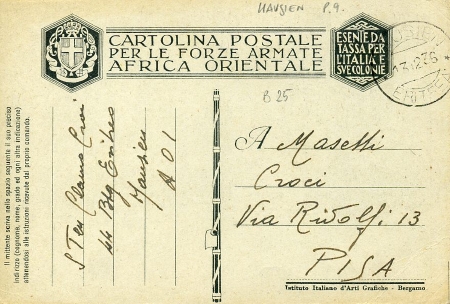 HAUSIEN P.9.
CARTOLINA POSTALE
PER LE FORZE ARMATE
AFRICA ORIENTALE
ESENTE DA
TASSA PER
L'ITALIA E
SVE COLONIE
HAUSIEN
13.12.36
ERITREA
B 25
Il mittente scriva nello spazio seguente il suo preciso
indirizzo (cognome, nome, grado ed ogni altra indicazione)
attenendosi alle istruzioni ricevute dal proprio comando.
S Ten Croci
44 Btg Eritreo
Hausien
A O I
A Masetti
Croci
Via Ridolfi 13
PISA
Istituto Italiano d'Arti Grafiche - Bergamo